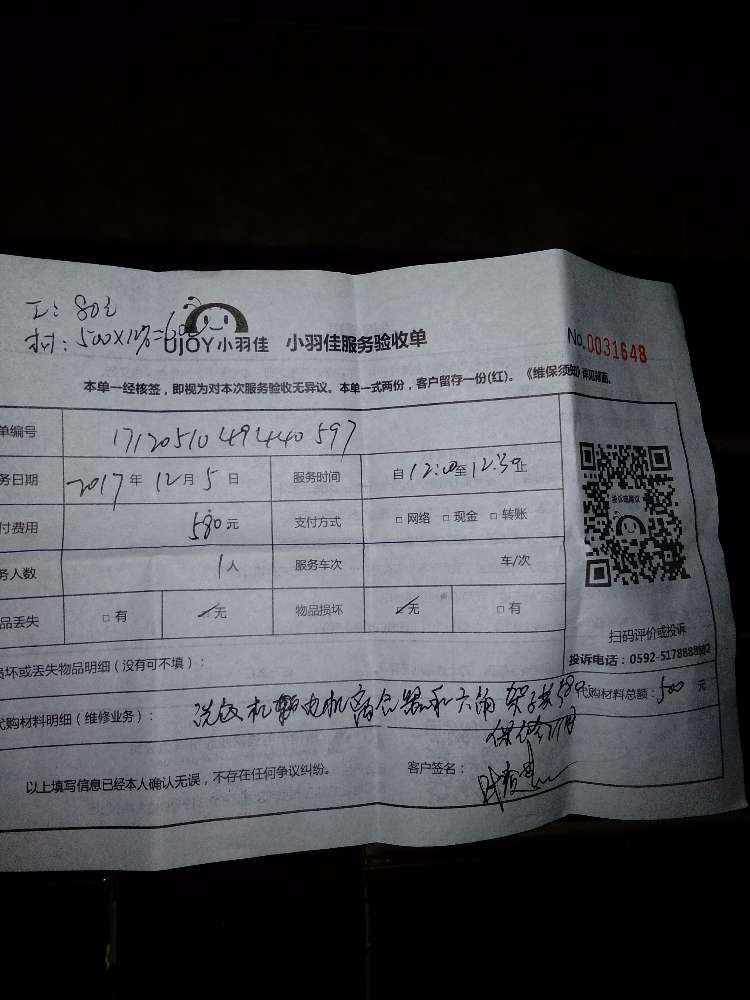 工: 80元
材: 500×12%=60元
UJOY小羽佳 小羽佳服务验收单
No.0031648
本单一经核签，即视为对本次服务验收无异议。本单一式两份，客户留存一份(红)。《维保须知》详见背面。
单编号 1712051049440597
务日期 2017年 12月 5日 服务时间 自12:00至12:30止
付费用 580元 支付方式 □ 网络 □ 现金 □ 转账
务人数 1人 服务车次 车/次
品丢失 □ 有 □ 无 物品损坏 □ 无 □ 有
扫码评价或投诉
投诉电话：0592-5178888
损坏或丢失物品明细（没有可不填）：
代购材料明细（维修业务）： 洗衣机 电机离合器和六角架子共580
代购材料总额：500元
以上填写信息已经本人确认无误，不存在任何争议纠纷。
客户签名：